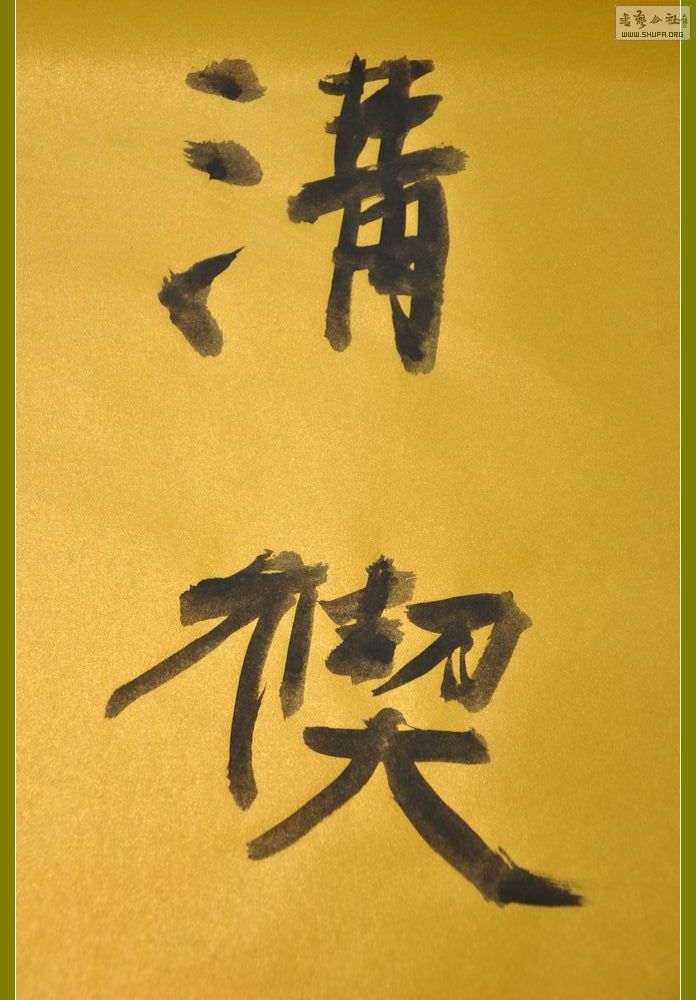 書藝公社
WWW.SHUFA.ORG
溝
禊